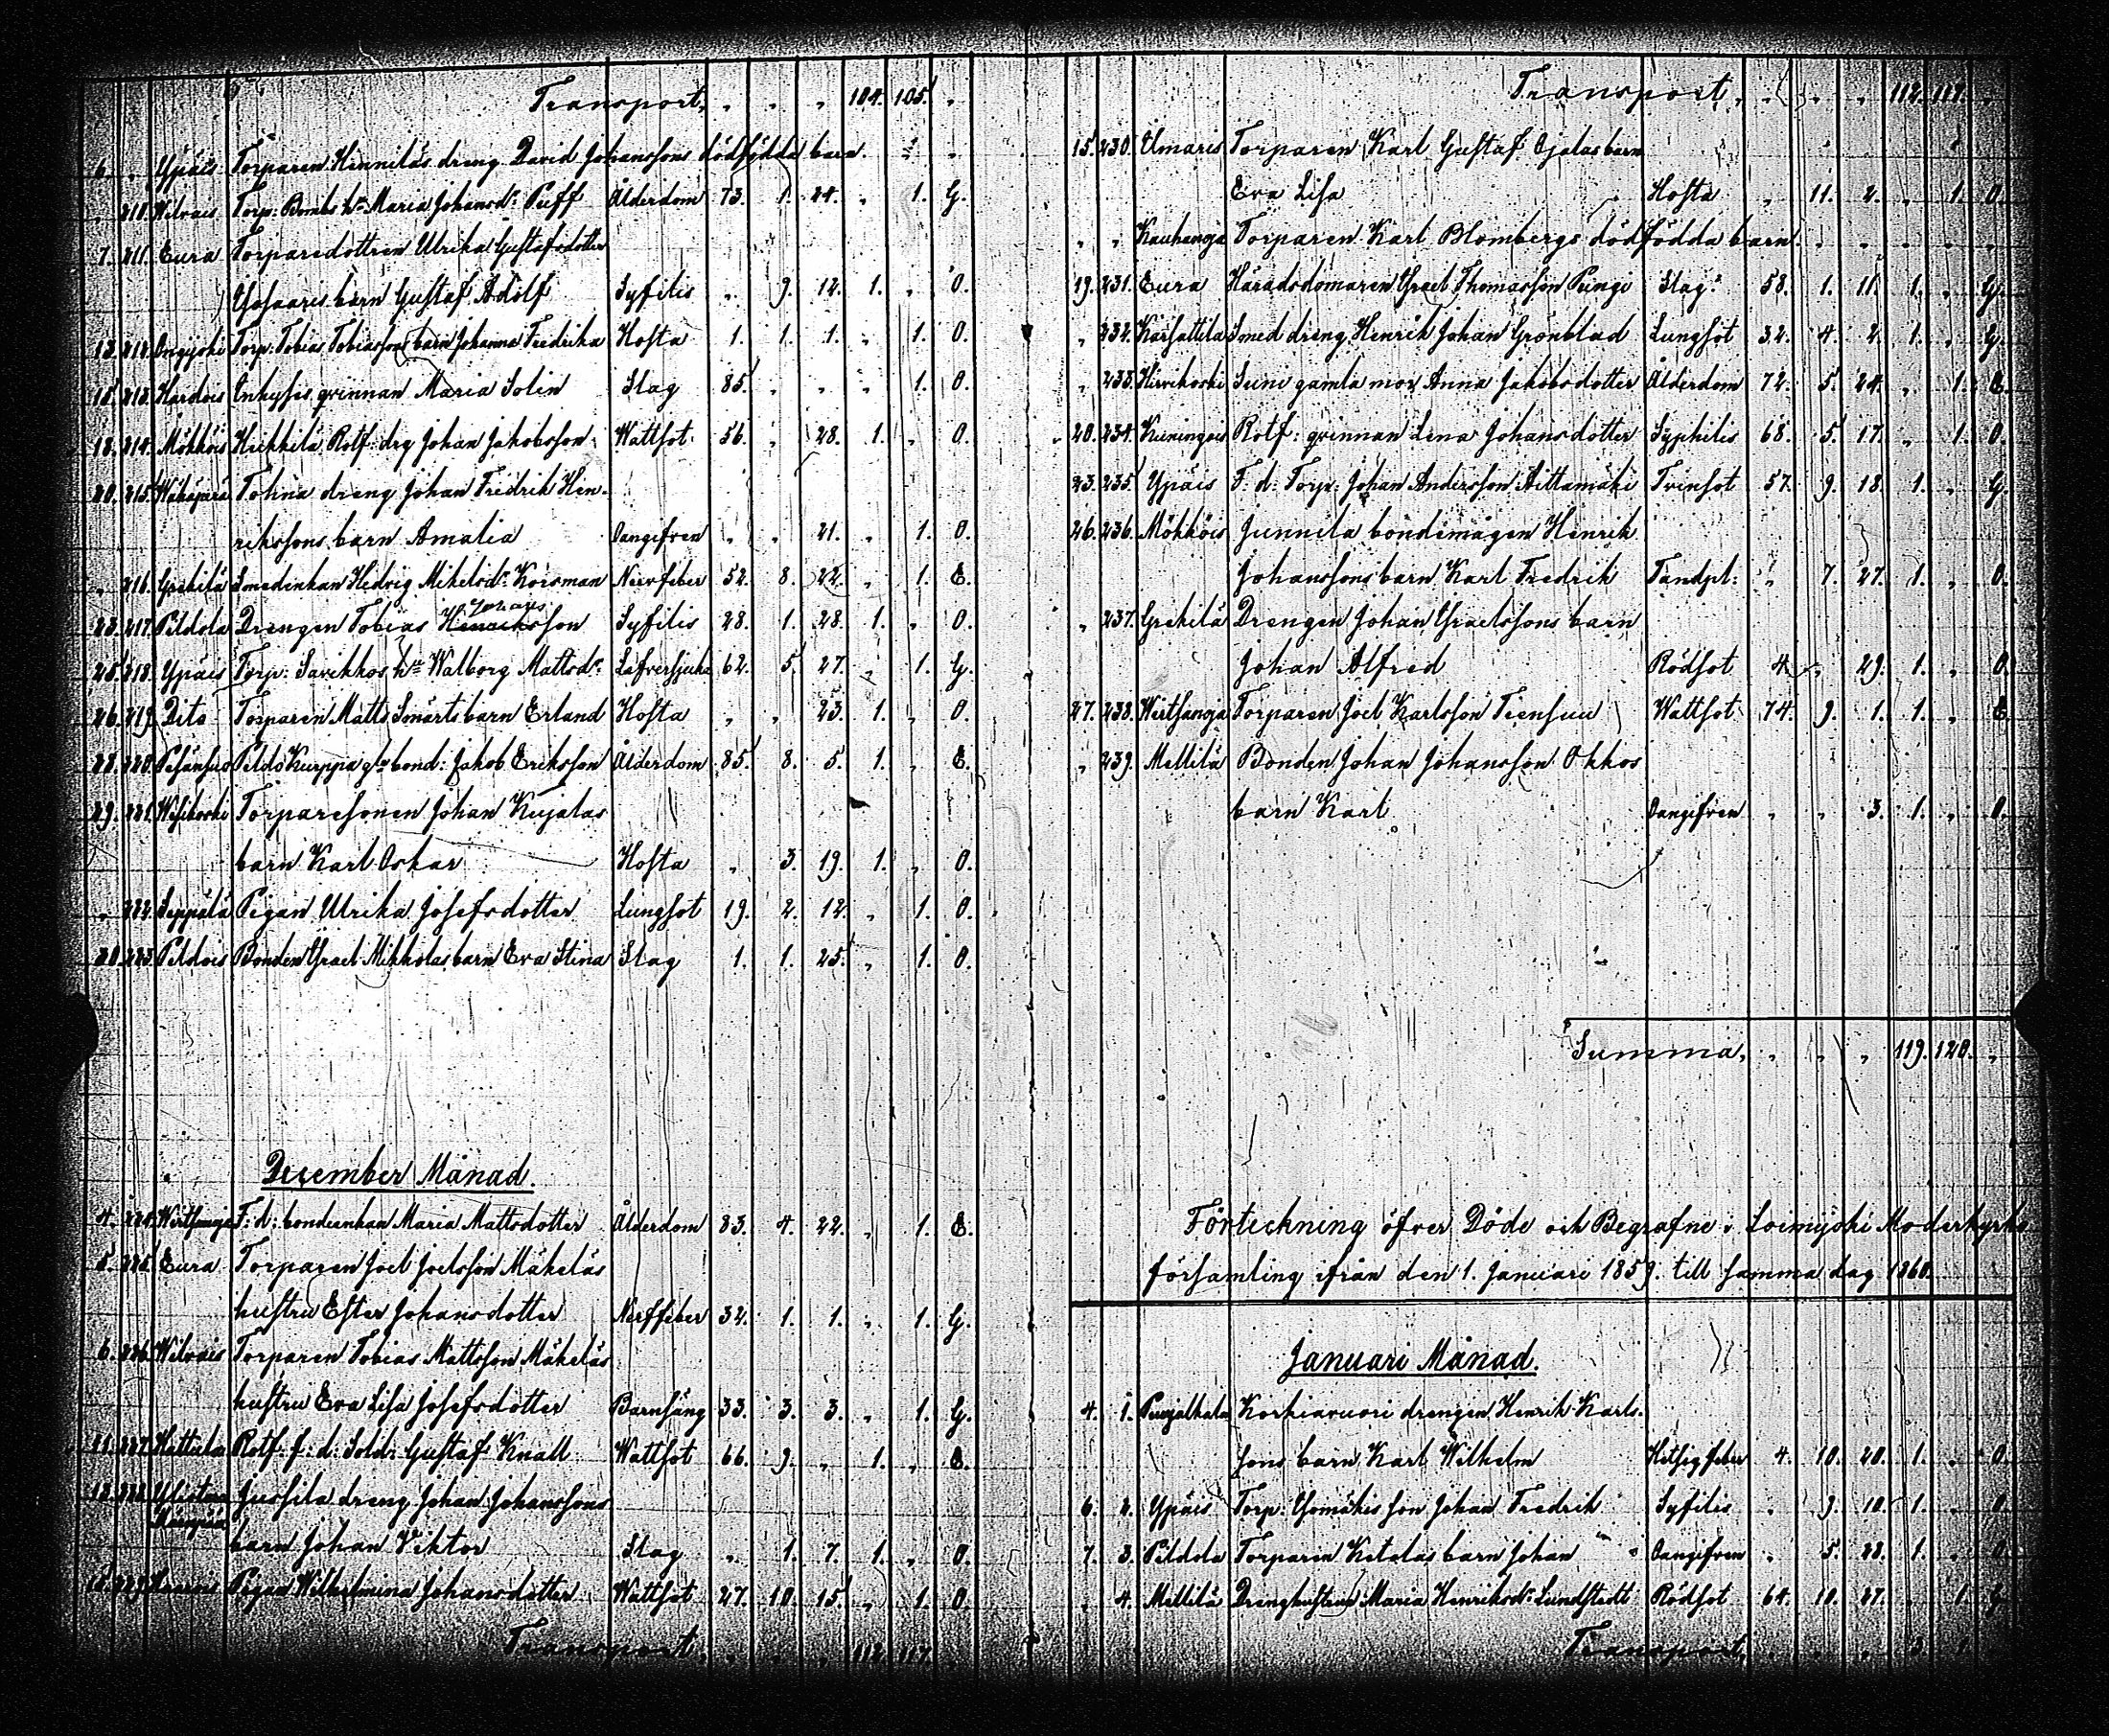 Transport, „ „ „ 104. 105. „
6. „ Ypäis Torparen Hinniläs dreng David Johanssons dödfödda barn. „ „
„ 210. Wilvais Torp: Bombs hu Maria Johansdr Puff Ålderdom 73. 1. 24. „ 1. G.
7. 211. Eura Torparedottren Ulrika Gustafsdotter
Ysosaaris barn Gustaf Adolf Syfilis „ 9. 12. 1. „ O.
13. 212. Ongijoki Torp: Tobias Tobiassons barn Johanna Fredrika Hosta 1. 1. 1. „ 1. O.
15. 213. Hardois Inhyses qvinnan Maria Solin Slag 85. „ „ „ 1. O.
18. 214. Mökköis Heikkilä Rotf: drg Johan Jakobsson Wattsot 56. „ 28. 1. „ O.
20. 215. Tohna dreng Johan Fredrik Hen-
rikssons barn Amalia Oangifven „ „ 21. „ 1. O.
„ 216. Grekilä Smedenkan Hedvig Mikelsdr Korsman Nervfeber 52. 8. 22. „ 1. E.
Johans
23. 217. Peldola Drengen Tobias Henriksson Syfilis 28. 1. 28. 1. „ O.
25. 218. Ypäis Torp: Savikkos hu Walborg Mattsdr Lefversjuka 62. 5. 27. „ 1. G.
26. 219. Dito Torparen Matts Smärts barn Erland Hosta „ „ 23. 1. „ O.
28. 220. Pesänsuo Pelds Kurppa gle bond: Jakob Eriksson Ålderdom 85. 8. 5. 1. „ E.
29. 221. Wesikoski Torparesonen Johan Kujalas
barn Karl Oskar Hosta „ 3. 19. 1. „ O.
„ 222. Seppälä Pigan Ulrika Josefsdotter Lungsot 19. 2. 12. „ 1. O.
30. 223. Peldois Bonden Israel Mikkolas barn Eva Stina Slag 1. 1. 25. „ 1. O.
December Månad.
4. 224. Wirtsanoja F: d: bondeenkan Maria Mattsdotter Ålderdom 83. 4. 22. „ 1. E.
5. 225. Eura Torparen Joel Joelsson Mäkeläs
hustru Ester Johansdotter Nerffeber 32. 1. 1. „ 1. G.
6. 226. Wilvais Torparen Tobias Mattsson Mäkeläs
hustru Eva Lisa Josefsdotter Barnsäng 33. 3. 3. „ 1. G.
11. 227. Hattula Rotf: f: d: Sold: Gustaf Knall Wattsot 66. 9. „ 1. „ E.
12. 228. Ylistaro Jussila dreng Johan Johanssons
barn Johan Viktor Slag „ 1. 7. 1. „ O.
15. 229. Pigan Wilhelmina Johansdotter Wattsot 27. 10. 15. „ 1. O.
Transport, „ „ „ 112. 117.
Transport, „ „ „ 112. 117. „
15. 230. Ulmaris Torparen Karl Gustaf Ojalas barn
Eva Lisa Hosta „ 11. 2. „ 1. O.
„ „ Kauhanoja Torparen Karl Blombergs dödfödda barn. „ „ „ „ „
19. 231. Eura Häradsdomaren Israel Thomasson Pungi Slag. 58. 1. 11. 1. „ G.
„ 232. Karsattila Smed dreng Henrik Johan Grönblad Lungsot 32. 4. 2. 1. „ G.
„ 233. Hirvikoski Suni gamla mor Anna Jakobsdotter Ålderdom 72. 5. 24. „ 1. E.
20. 234. Kuningois Rotf: qvinnan Lena Johansdotter Syphilis 68. 5. 17. „ 1. O.
23. 235. Ypäis F: d: Torp: Johan Andersson Aittamäki Tvinsot 57. 9. 18. 1. „ G.
26. 236. Mökköis Junnila bondemågen Henrik
Johanssons barn Karl Fredrik Tandpl: „ 7. 27. 1. „ O.
„ 237. Grekilä Drengen Johan Israelssons barn
Johan Alfred Rödsot 4. „ 29. 1. „ O.
27. 238. Wirtsanoja Torparen Joel Karlsson Tiensuu Wattsot 74. 9. 1. 1. „ E.
„ 239. Mellilä Bonden Johan Johansson Okkos
barn Karl Oangifven „ „ 3. 1. „ O.
Summa, „ „ „ 119. 120. „
Förteckning öfver Döde och Begrafne i Loimijoki Moderkyrko
församling ifrån den 1. Januari 1859. till samma dag 1860.
Januari Månad.
4. 1. Puujalkala Korkiavuori drengen Henrik Karls-
sons barn Karl Wilhelm Hetsigfeber 4. 10. 20. 1. „ O.
6. 2. Ypäis Torp: Isomäkis son Johan Fredrik Syfilis „ 9. 10. 1. „ O.
7. 3. Peldola Torparen Ketalas barn Johan Oangifven „ 5. 28. 1. „ O.
„ 4. Mellilä Drenghustrun Maria Henriksdr Lundstedt Rödsot 64. 10. 27. „ 1. G.
Transport, „ „ „ 3. 1.